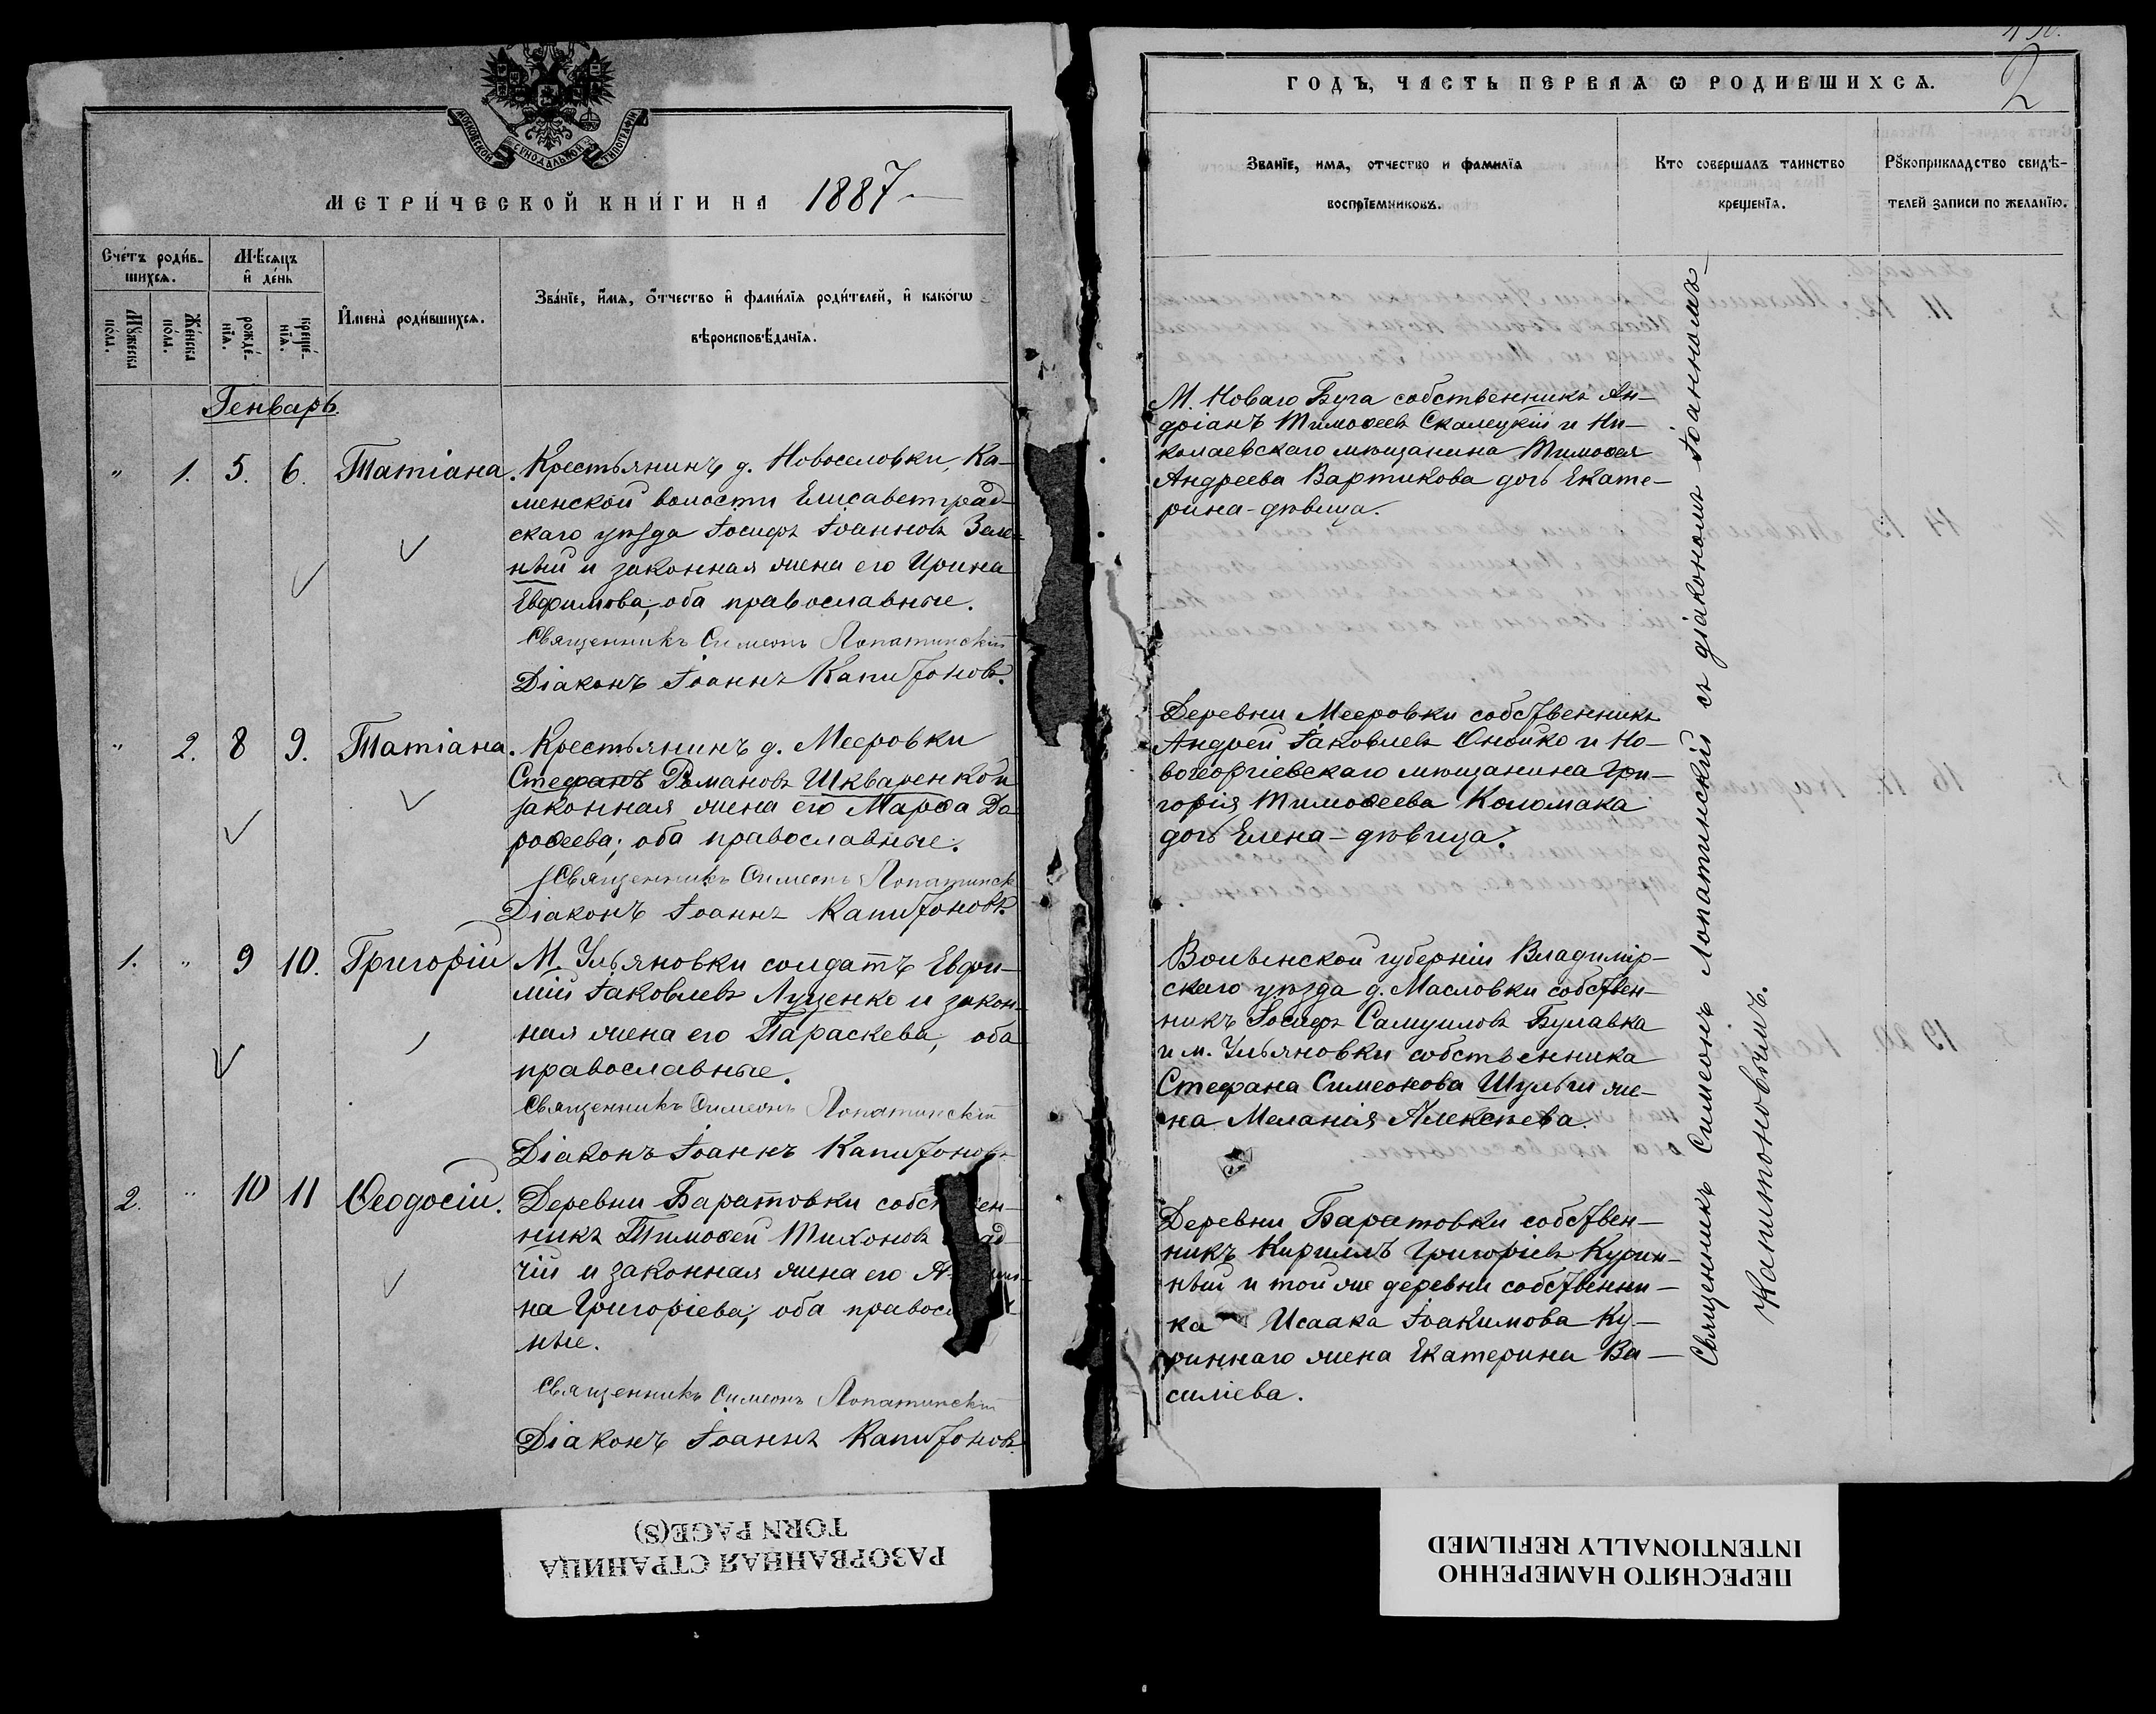 МОСКОВСКОЙ СѴНОДАЛЬНОЙ ТИПОГРАФІИ
МЕТРИ́ЧЕСКОЙ КНИ́ГИ НА 1887
Сче́тъ роди́в-
шихсѧ.
Мѣ́сѧцъ
и҆ де́нь
Мꙋ́жеска
по́ла.
Же́нска
по́ла.
рожде́-
нїѧ.
креще́-
нїѧ.
И҆мена̀ роди́вшихсѧ.
Зва́нїе, и҆́мѧ, ѻ҆́тчество и҆ фами́лїѧ роди́телей, и҆ како́гѡ
вѣроисповѣ́данїѧ.
Генварь.
" 1. 5. 6. Татіана. Крестьянинъ д. Новоселовки, Ка-
менской волости Елисаветград-
скаго уѣзда Іосифъ Іоанновъ Зеле-
ный и законная жена его Ирина
Евфимова; оба православные.
Священникъ Симеонъ Лопатинскій
Діаконъ Іоаннъ Капитоновъ.
" 2. 8 9. Татіана. Крестьянинъ д. Мееровки
Стефанъ Романовъ Шкваренко и
законная жена его Марѳа До
роѳеева; оба православные.
Священникъ Симеонъ Лопатинск
Діаконъ Іоаннъ Капитоновъ.
1. " 9 10. Григорій М. Ульяновки солдатъ Евфи-
мій Іаковлевъ Луценко и закон-
ная жена его Параскева, оба
православные.
Священникъ Симеонъ Лопатинскій
Діаконъ Іоаннъ Капитоновъ
2. " 10 11 Ѳеодосій. Деревни Баратовки собс вен-
никъ Тимоѳей Тихоновъ
чій и законная жена его
на Григоріева; оба правосл
ные.
Священникъ Симеонъ Лопатинскій
Діаконъ Іоаннъ Капитоновъ.
2
ГОДЪ, ЧАСТЬ ПЕРВАЯ Ѡ РОДИВШИХСѦ.
Званїе, имѧ, отчество и фамилїѧ
воспрїемниковъ.
Кто совершалъ таинство
крещенїѧ.
Рꙋкоприкладство свидѣ-
телей записи по желанїю.
М. Новаго Буга собственникъ Ан-
дріанъ Тимоѳеевъ Скалецкій и Ни-
колаевскаго мѣщанина Тимоѳея
Андреева Вартикова дочь Екате-
рина-дѣвица.
Деревни Мееровки собственникъ
Андрей Іаковлевъ Онойко и Но-
вогеоргіевскаго мѣщанина Гри-
горія Тимоѳеева Коломака
дочь Елена-дѣвица.
Волынской губерніи Владимір-
скаго уѣзда д. Масловки собствен-
никъ Іосифъ Самуиловъ Булавка
и м. Ульяновки собственника
Стефана Симеонова Шульги же-
на Меланія Алексѣева.
Деревни Баратовки собствен-
никъ Кириллъ Григоріевъ Курин-
ный и той же деревни собственни-
ка Исаака Іоакимова Ку-
риннаго жена Екатерина Ва-
силіева.
Священникъ Симеонъ Лопатинскій съ діакономъ Іоанномъ
Капитоновымъ.
РАЗОРВАННАЯ СТРАНИЦА
TORN PAGE(S)
ПЕРЕСНЯТО НАМЕРЕННО
INTENTIONALLY REFILMED